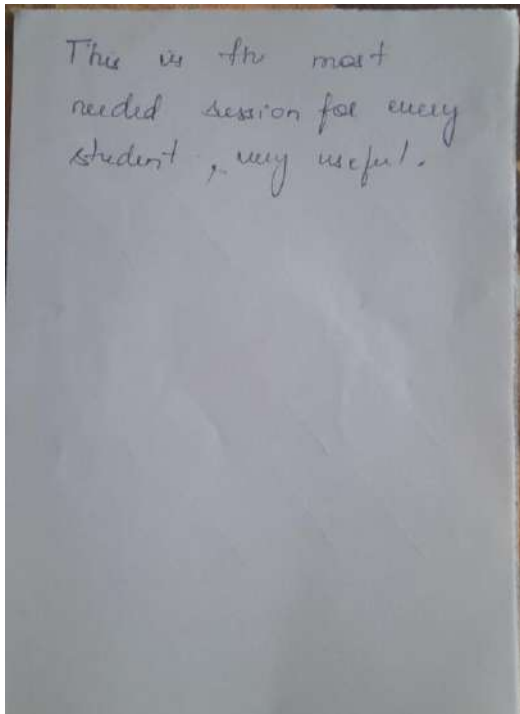 This is the most
needed session for every
student, very useful.